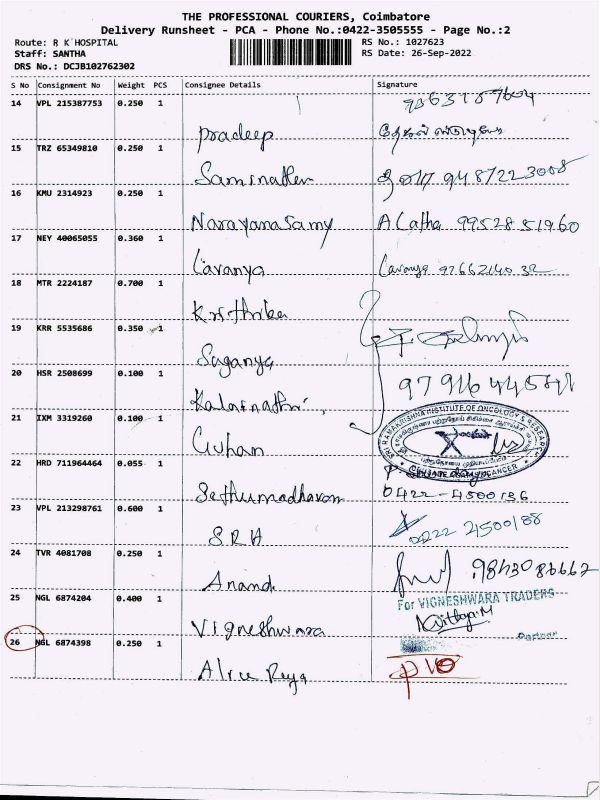 THE PROFESSIONAL COURIERS, Coimbatore
Delivery Runsheet - PCA - Phone No.:0422-3505555 - Page No.:2
Route: R K HOSPITAL
Staff: SANTHA
DRS No.: DCJB102762302
RS No.: 1027623
RS Date: 26-Sep-2022
S No Consignment No Weight PCS Consignee Details Signature
14 VPL 215387753 0.250 1
pradeep
15 TRZ 65349810 0.250 1
Saminathan
16 KMU 2314923 0.250 1
Narayanasamy A Latha 99528 51960
17 NEY 40065055 0.360 1
Lavanya Lavanya 97662140 32
18 MTR 2224187 0.700 1
Krithika
19 KRR 5535686 0.350 1
Suganya
20 HSR 2508699 0.100 1
21 IXM 3319260 0.100 1
Guhan
SRI RAMAKRISHNA INSTITUTE OF ONCOLOGY & RESEARCH
22 HRD 711964464 0.055 1
Sethumadhavan 0422-4500136
23 VPL 213298761 0.600 1
S R H
24 TVR 4081708 0.250 1
Anand
25 NGL 6874204 0.400 1
For VIGNESHWARA TRADERS
Vigneshwara
Partner
26 NGL 6874398 0.250 1